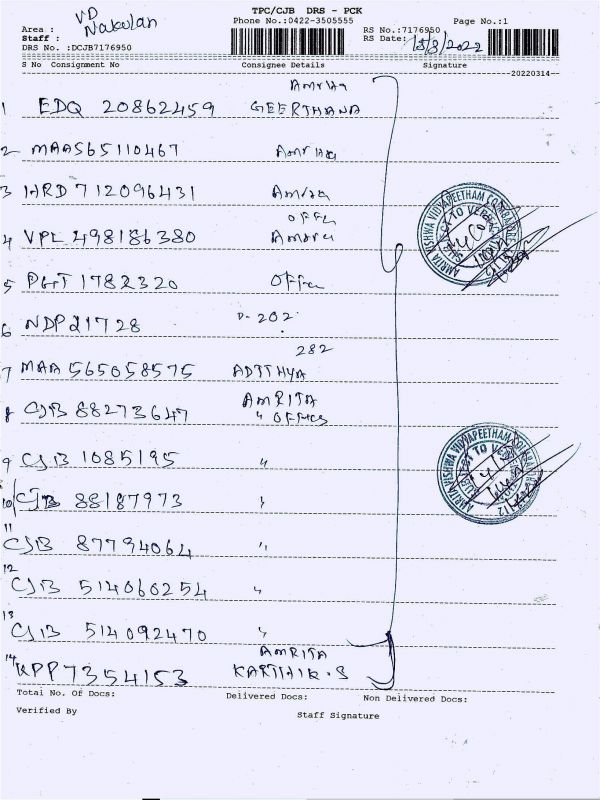 TPC/CJB DRS - PCK
Phone No.:0422-3505555
Page No.:1
Area : VD
Staff : Nakulan
DRS No. :DCJB7176950
RS No.:7176950
RS Date: 15/3/2022
S No Consignment No Consignee Details Signature
--20220314--
Amrita
1 EDQ 20862459 GEERTHANA
2 MAA565110467 Amrita
3 HRD 712096431 Amrita
Office
4 VPL 498186380 Amrita
5 PGT 1782320 Office
6 NDP21728 D-202
282
7 MAA 565058575 ADITHYA
AMRITA
8 CJB 88273647 " OFFICE
9 CJB 1085195 "
10 CJB 88187973 "
11
CJB 87794064 "
12
CJB 514060254 "
13
CJB 514092470 "
AMRITA
14 KPP7354153 KARTHIK.S
AMRITA VISHWA VIDYAPEETHAM COIMBATORE
SUBJECT TO
AMRITA VISHWA VIDYAPEETHAM
SUBJECT TO
Total No. Of Docs: Delivered Docs: Non Delivered Docs:
Verified By
Staff Signature